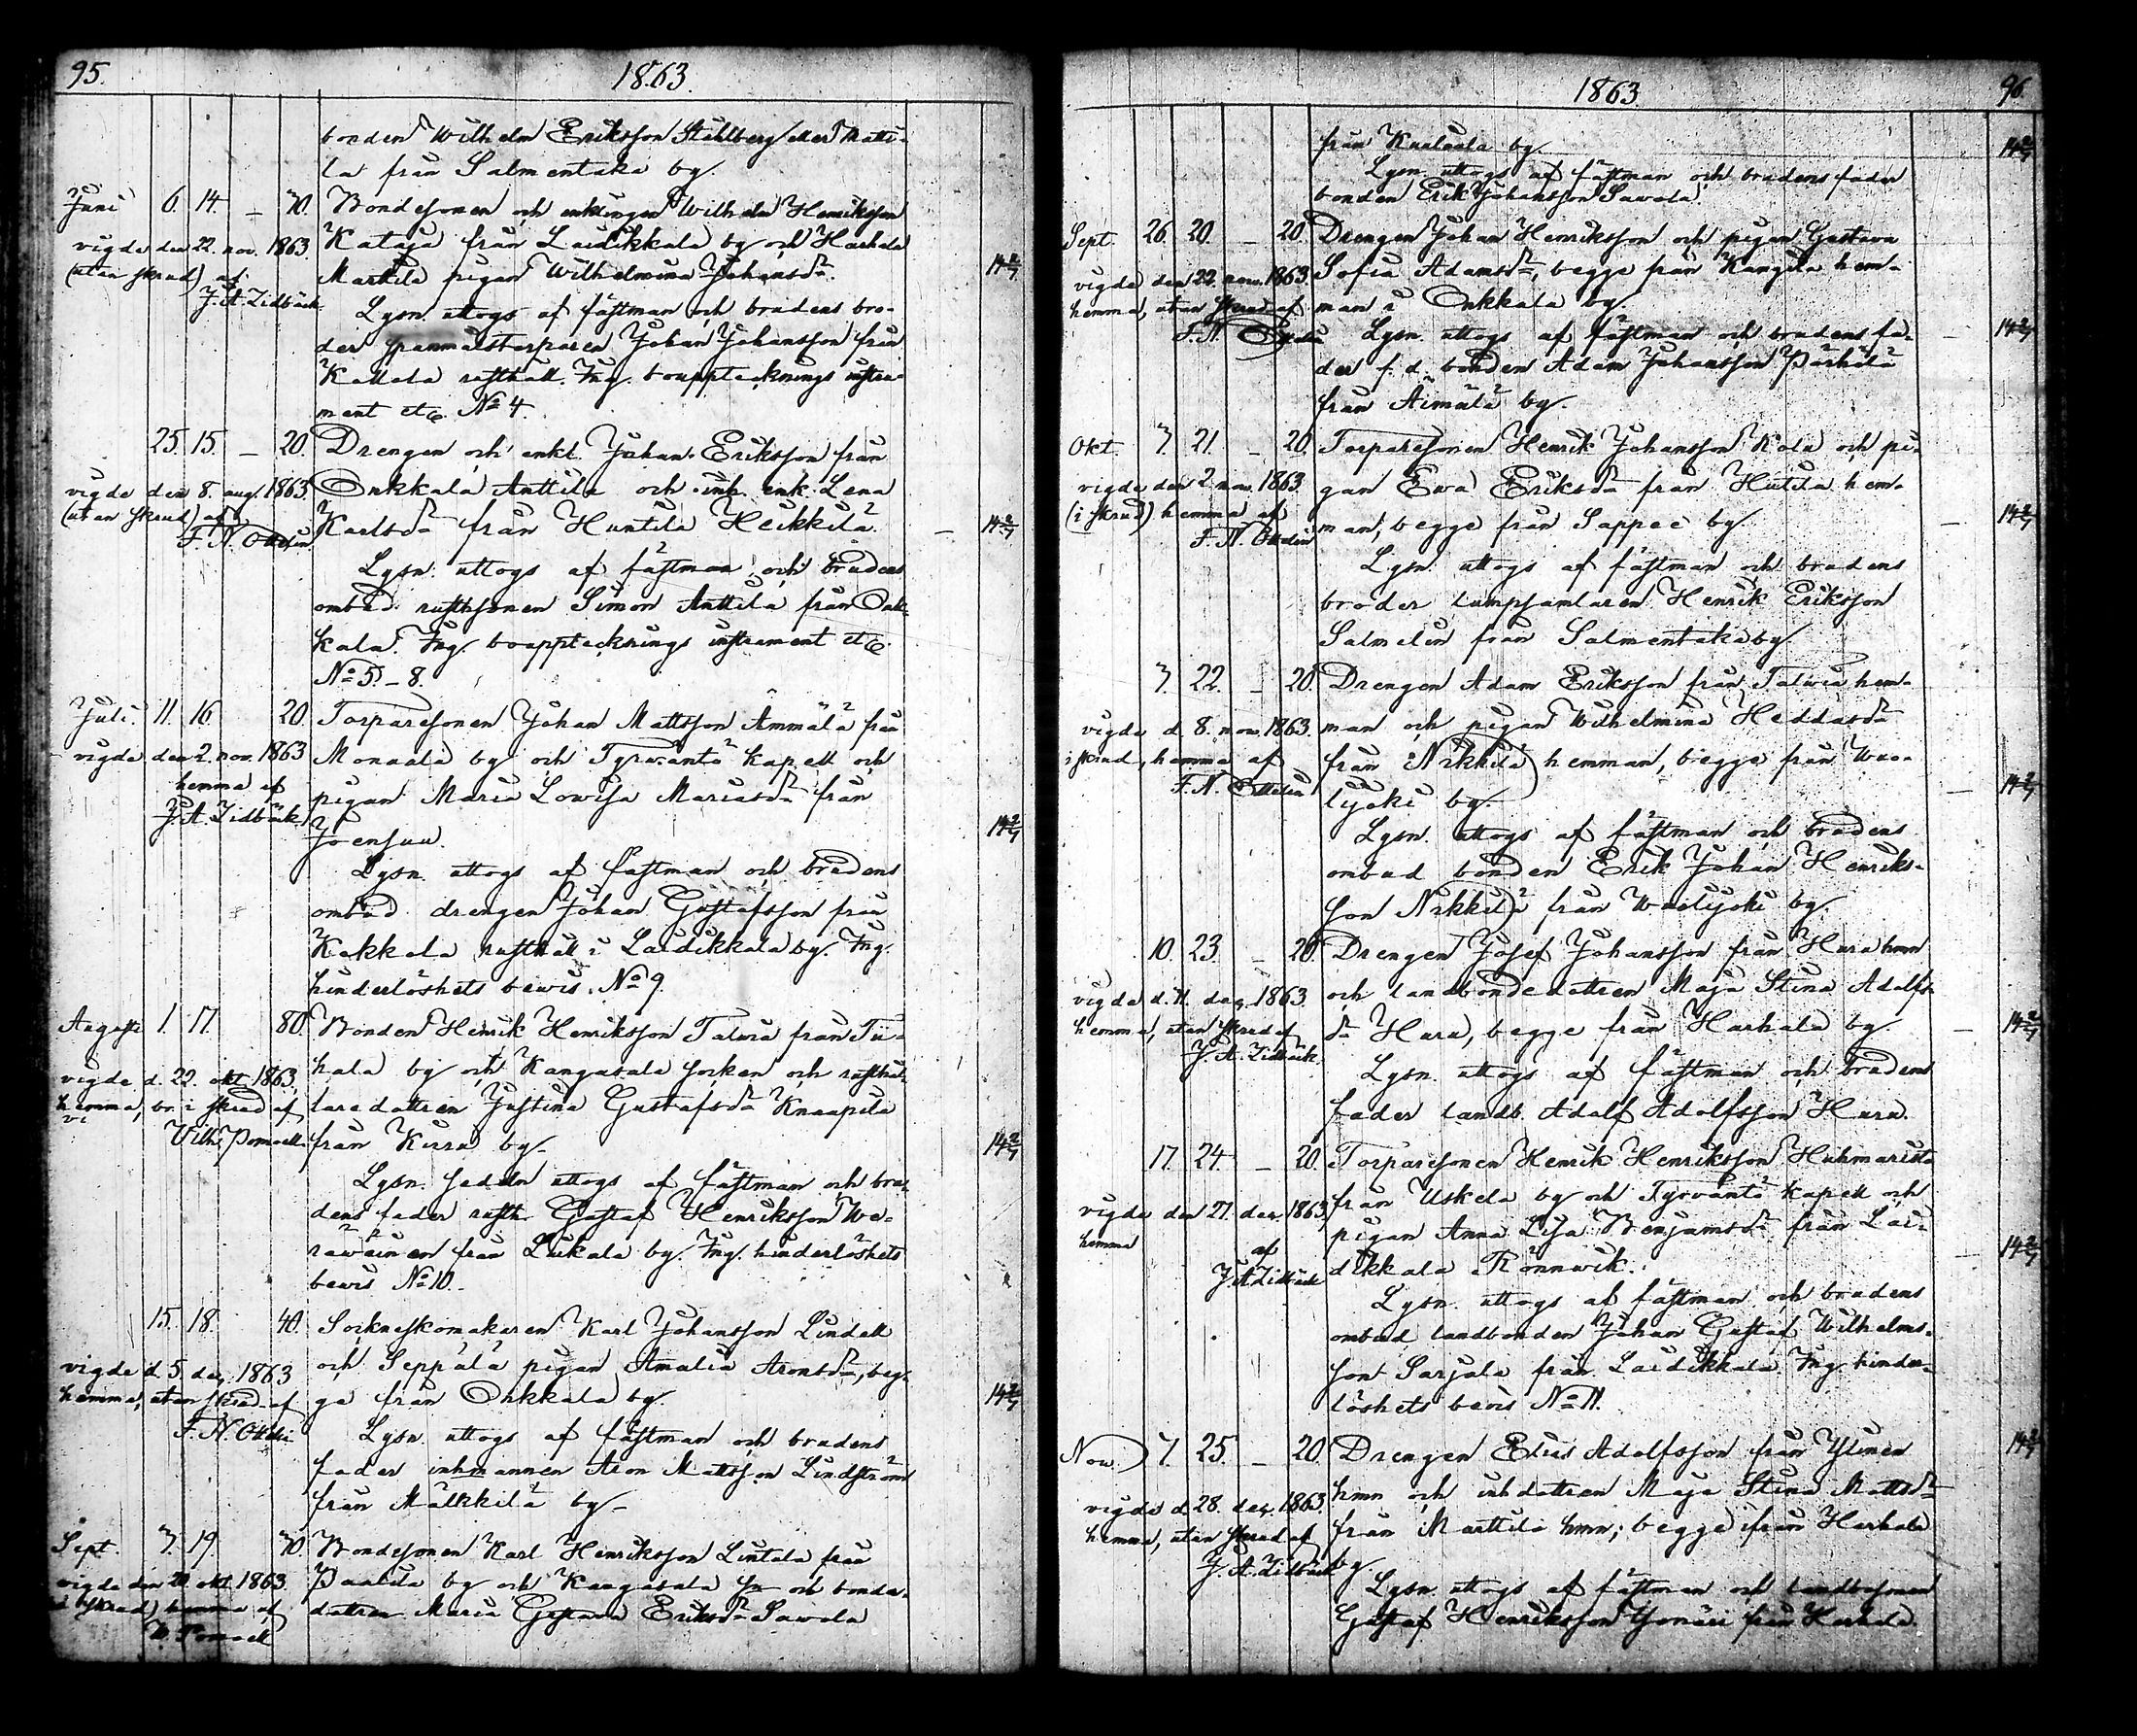 95. 1863.
bonden Wilhelm Eriksson Stählberg eller Matti-
la från Salmentaka by.
Juni 6. 14. – 70. Bondesonen och enklingen Wilhelm Henriksson
vigde den 22. nov. 1863. Kataja från Laidikkala by och Harhala
(utan skrud) af Marttila pigan Wilhelmina Johansdr.
J. A. Lidbäck
Lysn. uttogs af fästman och brudens bro-
der torparen Johan Johansson från
Kaltela rusthåll. Ing. bouppteckningsinstru-
ment etc. No 4.
25. 15. – 20. Drengen och enkl. Johan Eriksson från
vigde den 8. aug. 1863. Onkkala Anttila och inh. enk. Lena
(utan skrud) af Karlsdr från Huntila Heikkilä.
F. N. Ottelin
Lysn. uttogs af fästman och brudens
ombud rusthsonen Simon Anttila från Onk-
kala. Ing. bouppteckningsinstrument etc.
No 5. – 8.
Juli. 11. 16. 20. Torparesonen Johan Mattsson Ämmälä från
vigde den 2. nov. 1863 Monaala by och Tyrwäntö kapell och
hemma af pigan Maria Lowisa Mariasdr från
J. A. Lidbäck Joensuu.
Lysn. uttogs af fästman och brudens
ombud drengen Johan Gustafsson från
Kakkala rusthåll i Laidikkala by. Ing.
hinderlöshets bewis. No 9.
Augusti 1. 17. 80. Bonden Henrik Henriksson Talwia från Tii-
vigde d. 22. okt. 1863. hala by och Kangasala socken och rusthål-
hemma, br. i skrud af laredottren Justina Gustafsdr Knaapila
Wilh. Pomoell från Kirra by.
Lysn. sedeln uttogs af fästman och bru-
dens fader rusth. Gustaf Henriksson We-
räwäinen från Luikala by. Ing. hinderlöshets
bewis No 10.
15. 18. 40. Sockneskomakaren Karl Johansson Lindell
vigde d. 5. dec. 1863 och Seppälä pigan Amalia Aronsdr, beg-
hemma, utan skrud af ge från Onkkala by.
F. N. Ottelin
Lysn. uttogs af fästman och brudens
fader inhmannen Aron Mattsson Lindström
från Mälkkilä by.
Sept. 7. 19. 70. Bondesonen Karl Henriksson Lintula från
vigde den okt. 1863. by och Kangasala sn och bonde-
i skrud) hemma af dottren Maria Gustava Eriksdr Sawola
W. Pomoell
1863 96
från by.
Lysn. uttogs af fästman och brudens fader
bonden Erik Johansson Sawola.
Sept. 26. 20. – 20. Drengen Johan Henriksson och pigan Gustava
vigde den 22. nov. 1863. Sofia Adamsdr, begge från Kangila hem-
hemma, utan skrud af man i Onkkala by.
F. N. Ottelin
Lysn. uttogs af fästman och brudens fa-
der f. d. bonden Adam Johansson Pärhälä
från Äimälä by.
Okt. 7. 21. – 20. Torparesonen Henrik Johansson Kola och pi-
vigde den 2. nov. 1863 gan Ewa Eriksdr från Hutila hem-
(i skrud) hemma af man, begge från Sappee by.
F. N. Ottelin
Lysn. uttogs af fästman och brudens
broder lumpsamlaren Henrik Eriksson
Salmelin från Salmentaka by.
7. 22. – 20. Drengen Adam Eriksson från Talwia hem-
vigde d. 8. nov. 1863. man och pigan Wilhelmina Heddasdr
i skrud, hemma af från Nikkilä hemman, begge från Wuo-
F. N. Ottelin lijoki by.
Lysn. uttogs af fästman och brudens
ombud bonden Erik Johan Henriks-
son Nikkilä från Wuolijoki by.
10. 23. – 20. Drengen Josef Johansson från Hura hmn
vigde d. 11. dec. 1863. och landbondedottren Maja Stina Adolfs-
hemma, utan skrud af dr Hura, begge från Harhala by.
J. A. Lidbäck
Lysn. uttogs af fästman och brudens
fader landb. Adolf Adolfsson Hura.
17. 24. – 20. Torparesonen Henrik Henriksson Huhmarista
vigde den 27. dec. 1863. från Uskela by och Tyrväntö kapell och
hemma pigan Anna Lisa Benjamsdr från Lai-
af J. A. Lidbäck dikkala Rönnwik.
Lysn. uttogs af fästman och brudens
ombud landbonden Johan Gustaf Wilhelms-
son Sarjala från Laidikkala. Ing. hinder-
löshets bevis No 11.
Now. 7. 25. – 20. Drengen Elias Adolfsson från Ylinen
vigde d. 28. dec. 1863. hmn och inhdottren Maja Stina Mattsdr
hemma, utan skrud af från Marttila hmn; begge från Harhala
J. A. Lidbäck by.
Lysn. uttogs af fästman och landbosonen
Gustaf Henriksson från Harhala.